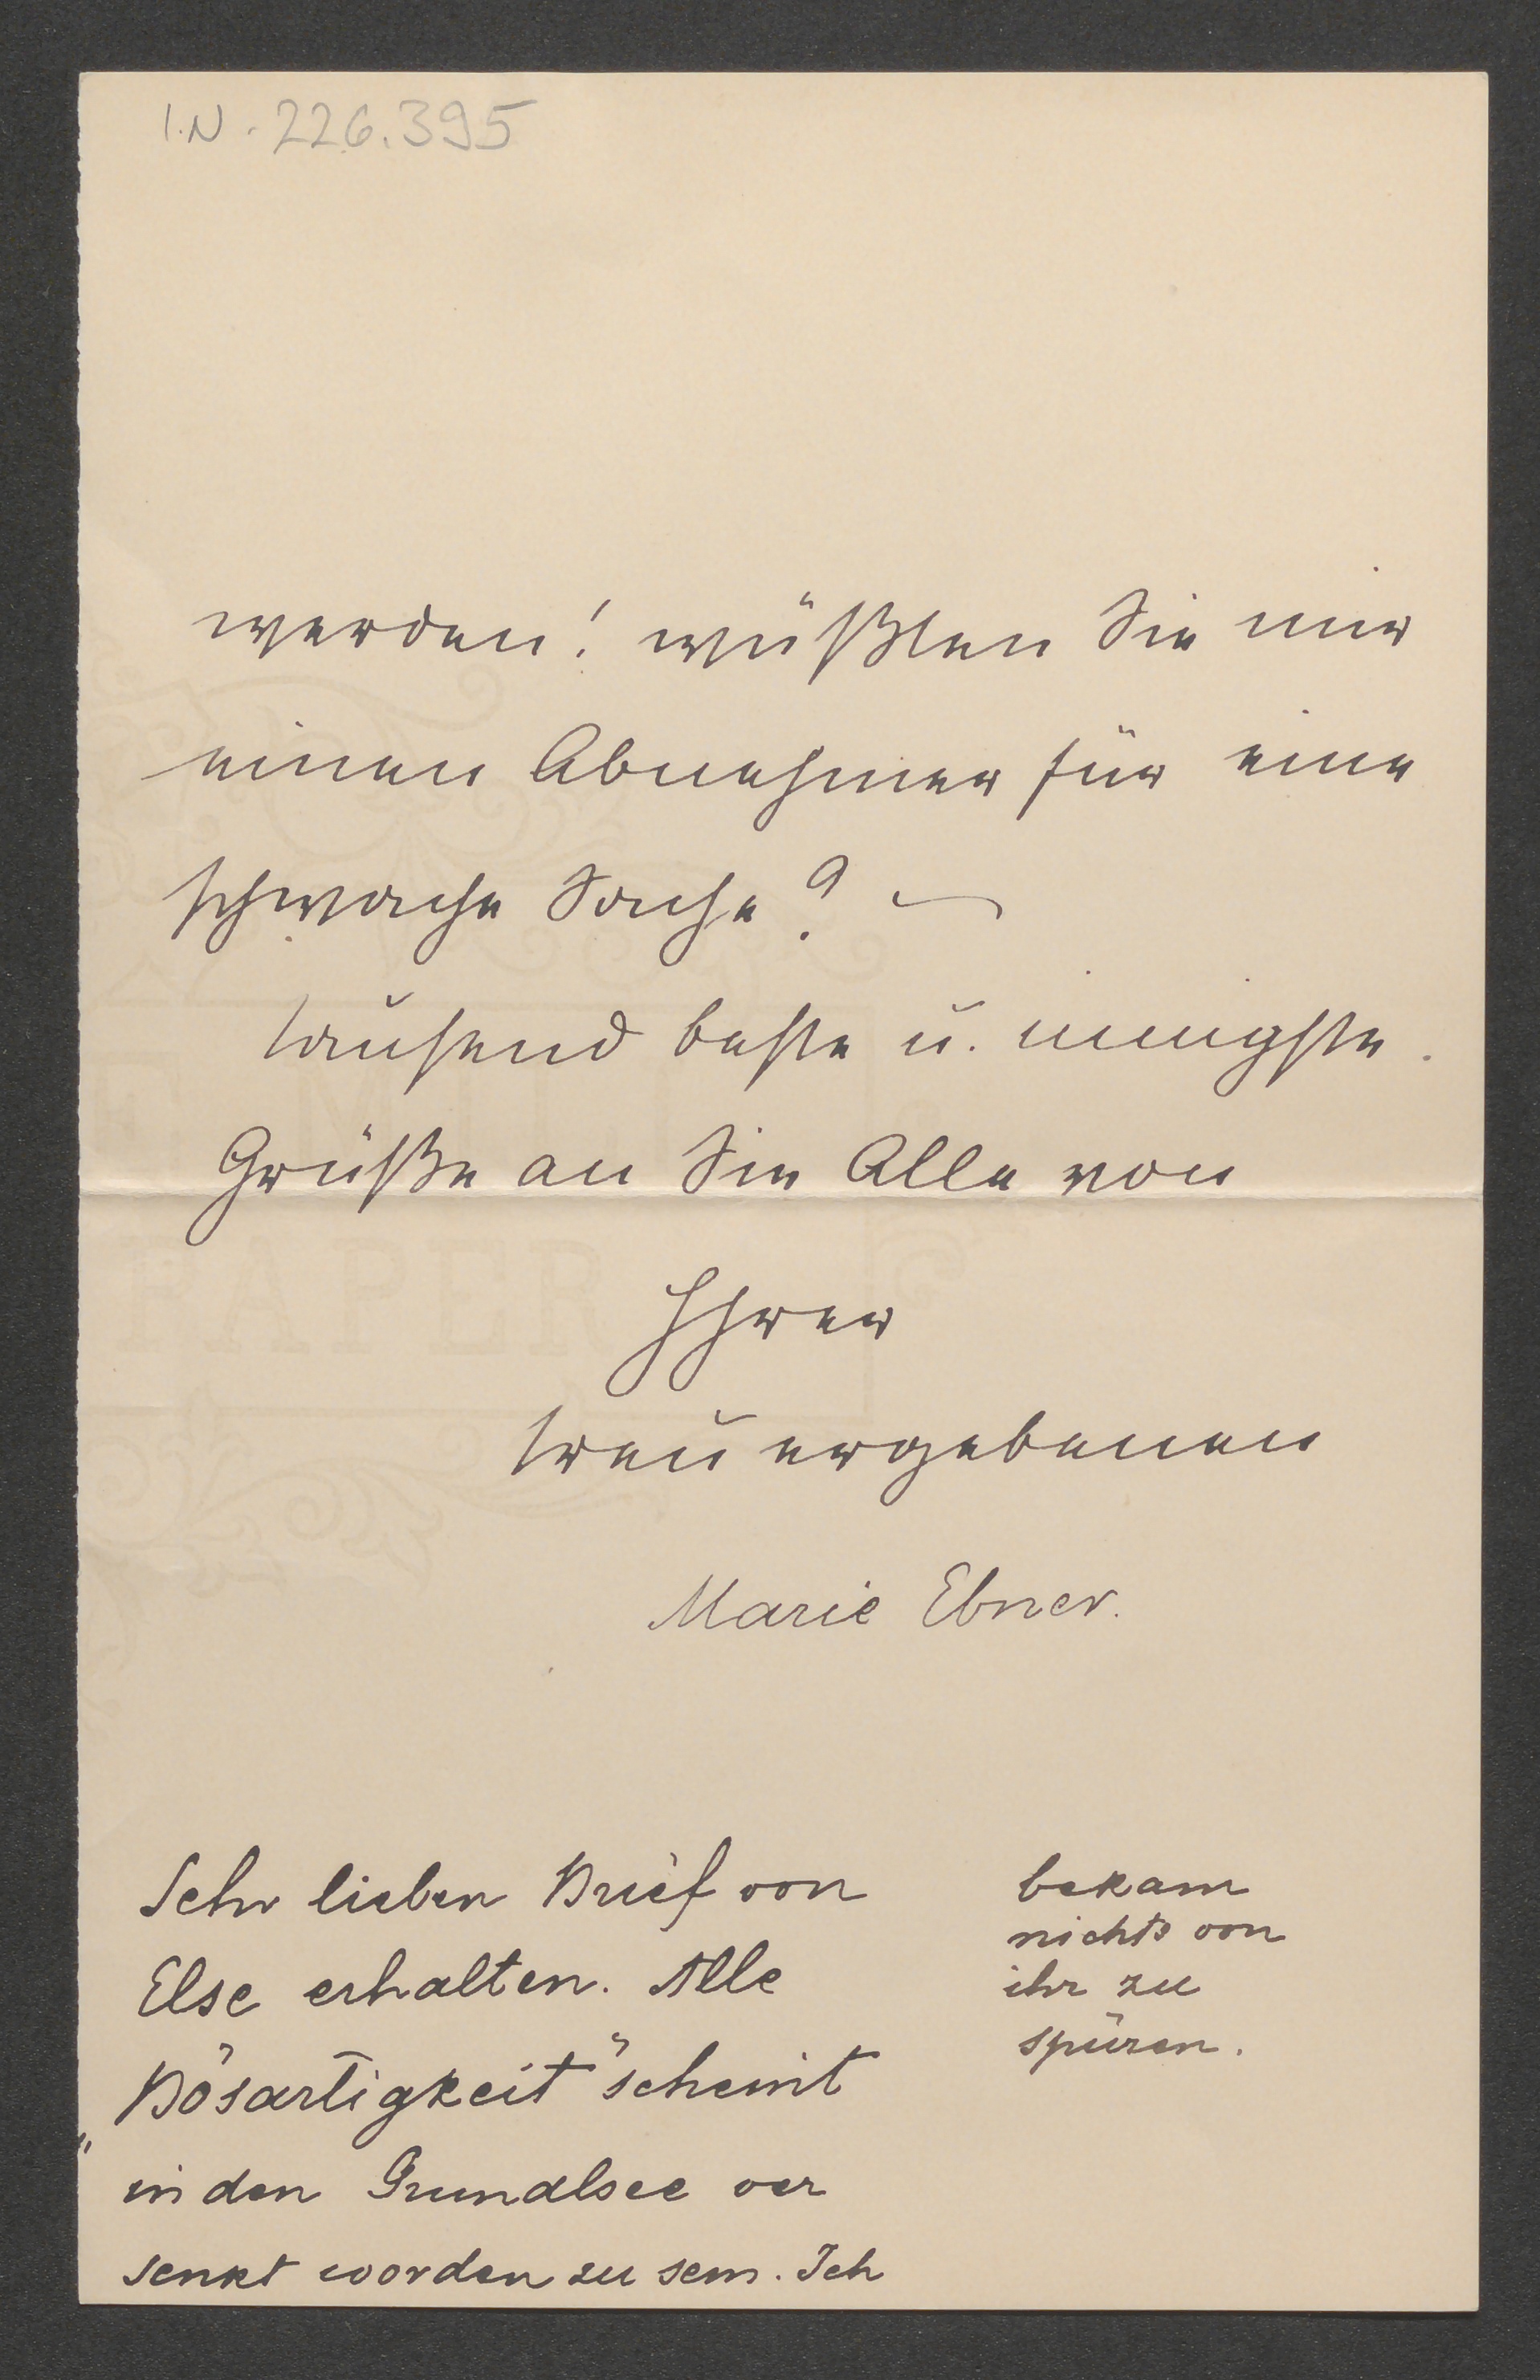 I.N. 226.395
werden! wüßten Sie mir
einen Abnehmer für eine
schwache Sache? —
tausend beste u. innigste
Grüße an Sie Alle von
Ihrer
treu ergebenen
Marie Ebner.
Sehr lieben Brief von
Else erhalten. Alle
„Bösartigkeit" scheint
in den Grundlsee ver
senkt worden zu sein. Ich
bekam
nichts von
ihr zu
spüren.
PAPER